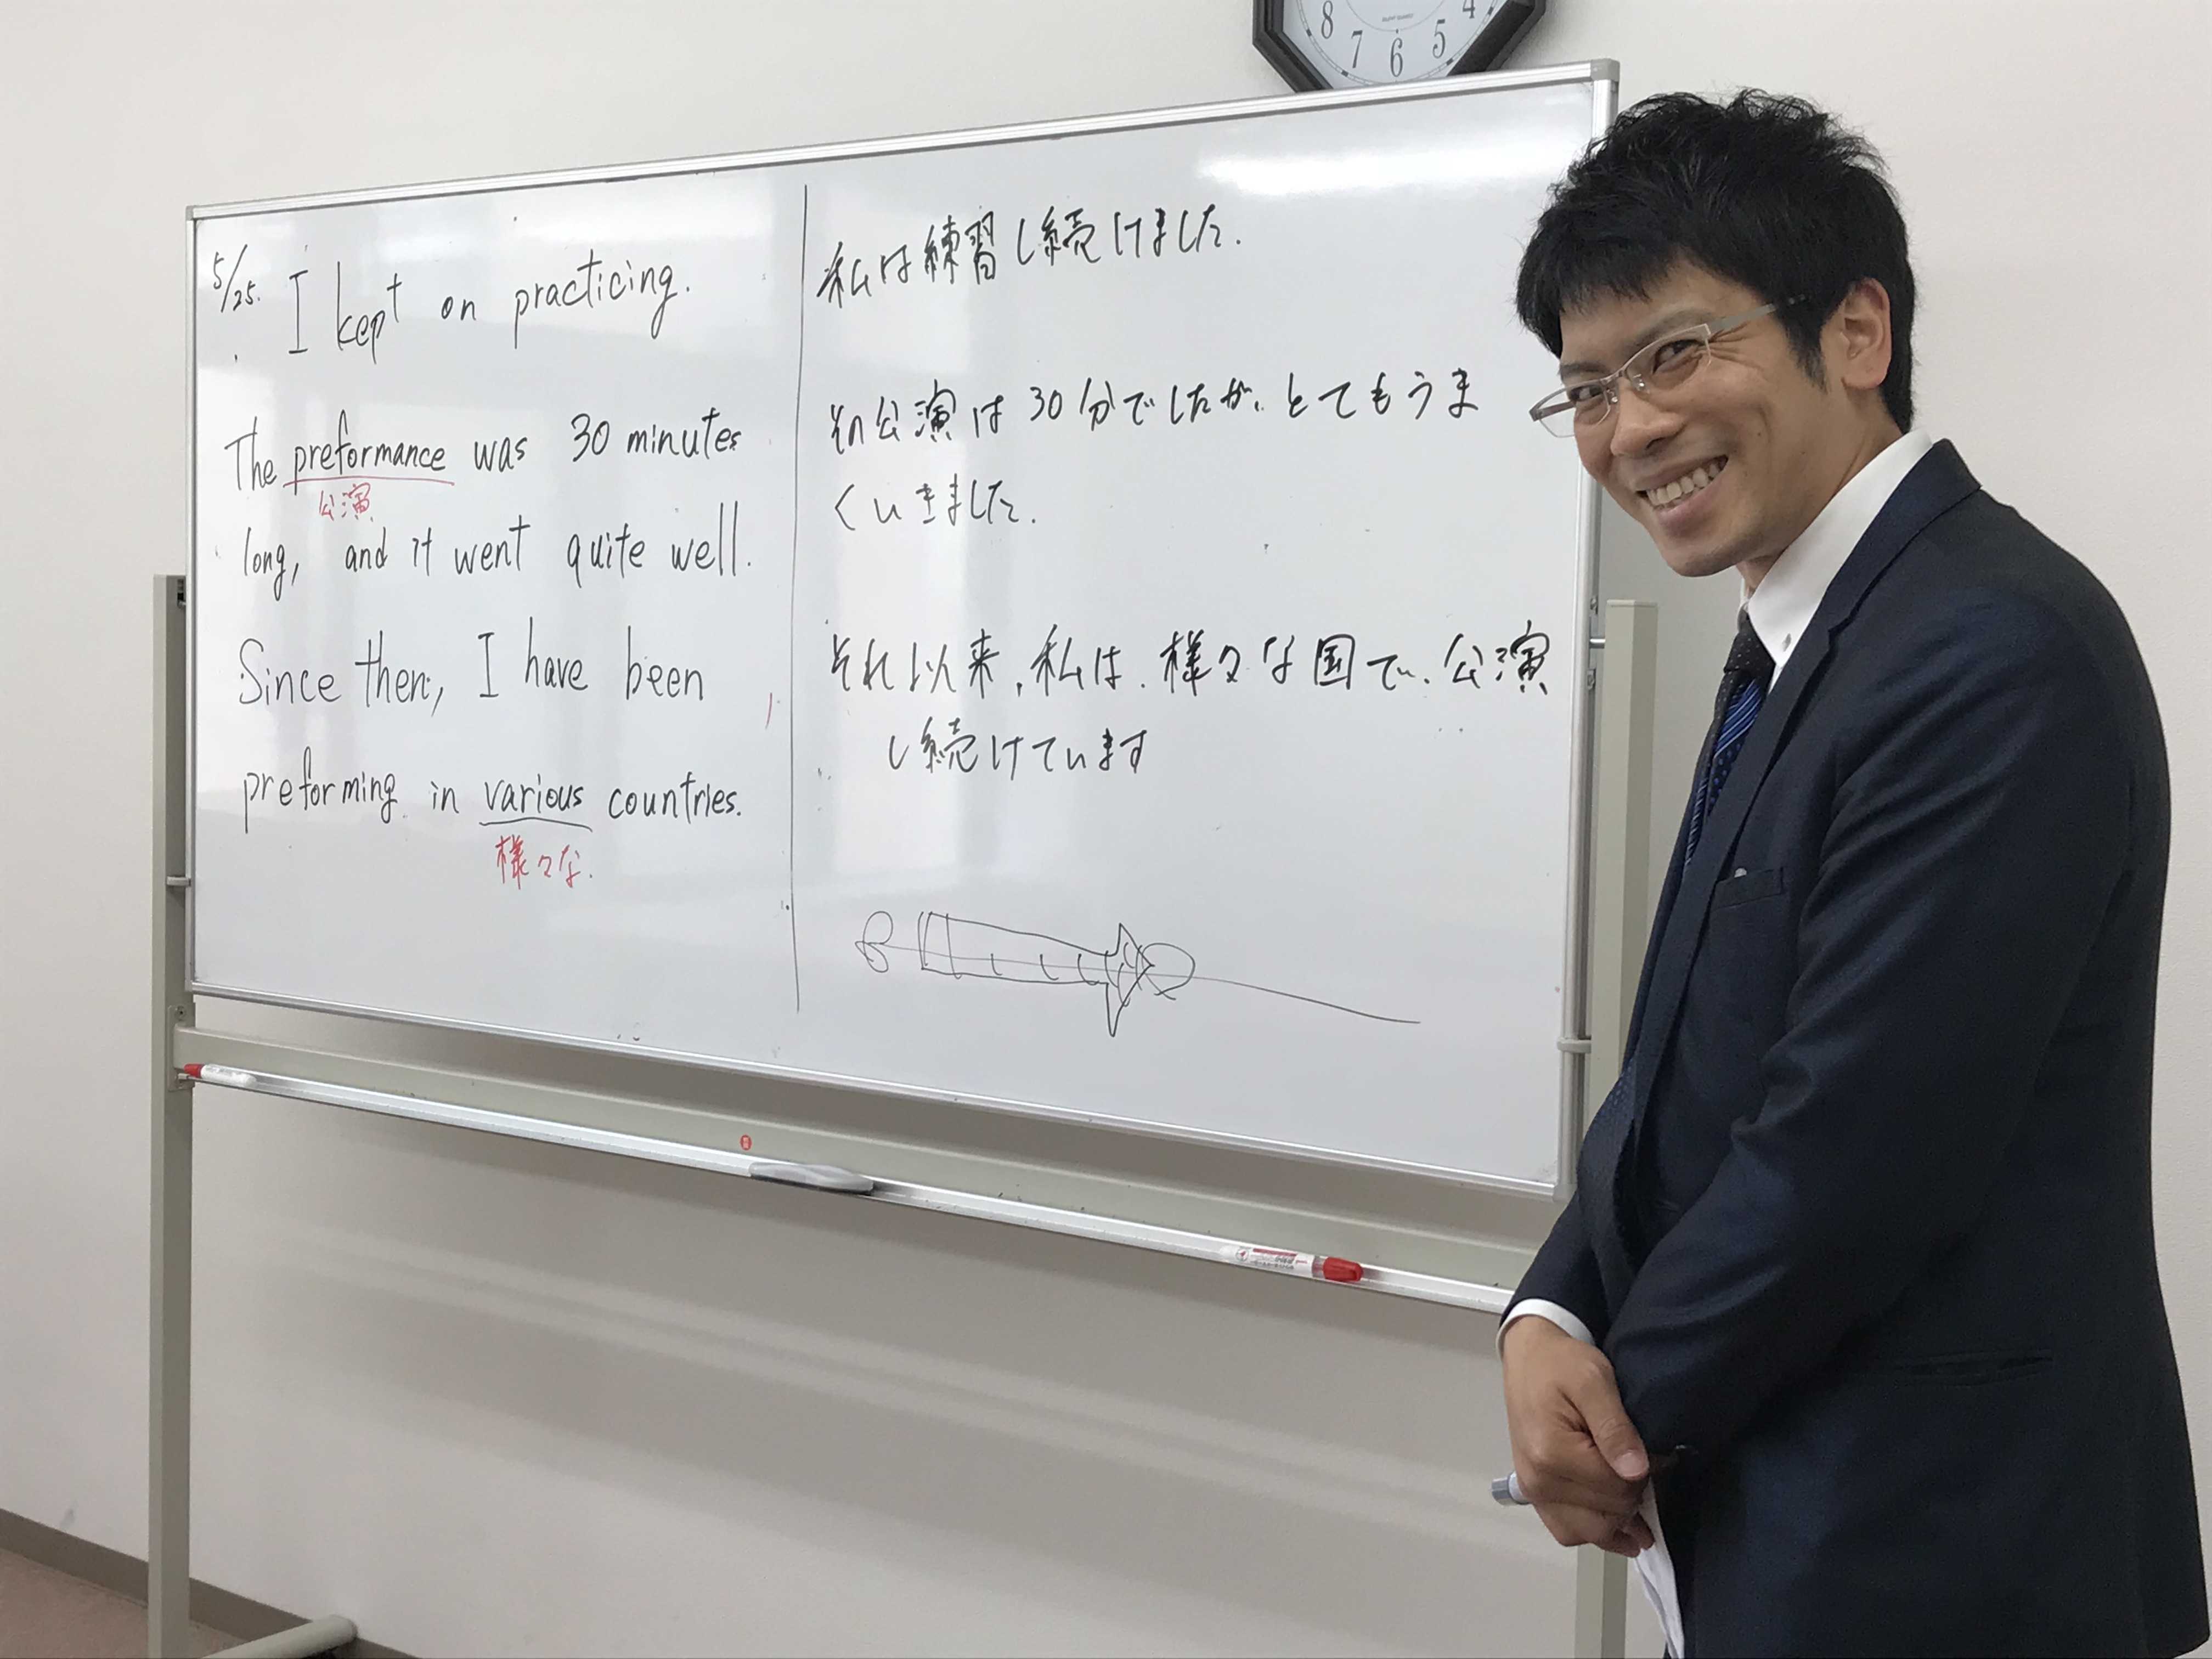 8 7 6 5 4
5/25. I kept on practicing.
The preformance was 30 minutes
公演
long, and it went quite well.
Since then, I have been
preforming in various countries.
様々な.
私は練習し続けました.
その公演は30分でしたが、とてもうま
くいきました.
それ以来,私は.様々な国で、公演
し続けています